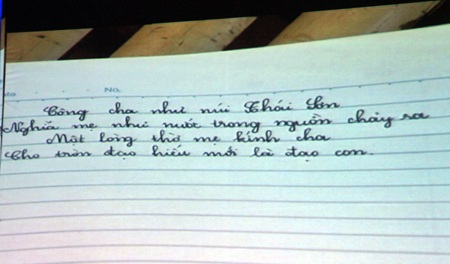 No.
Công cha như núi Thái Sơn
Nghĩa mẹ như nước trong nguồn chảy ra
Một lòng thờ mẹ kính cha
Cho tròn đạo hiếu mới là đạo con.